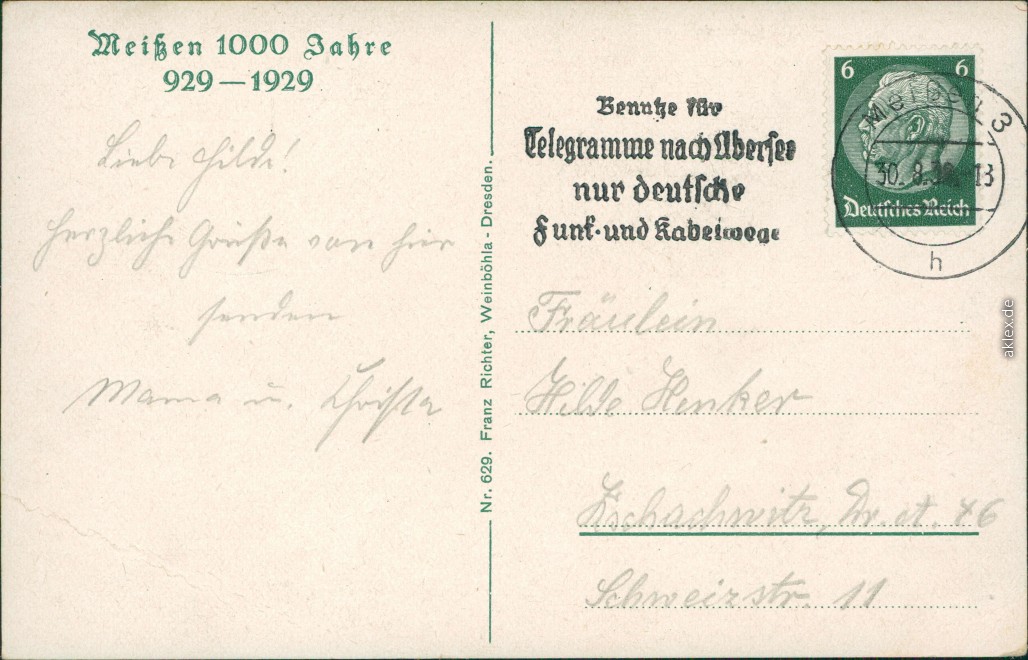 Meißen 1000 Jahre
929 — 1929
Liebe Hilde!
Herzliche Grüße von hier
senden
Mama u. Christa
Nr. 629. Franz Richter, Weinböhla - Dresden.
Benutze für
Telegramme nach Übersee
nur deutsche
Funk- und Kabelwege
6 6
Deutsches Reich
Meißen 3
30. 8. 13
h
Fräulein
Hilde Henker
Kschachwitz, Dr. A. 46
Schweizstr. 11
aklex.de